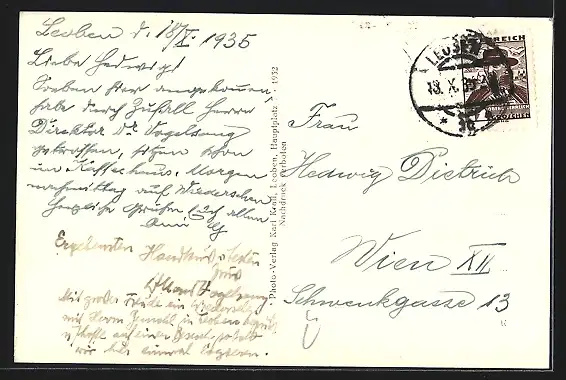 Leoben d. 18/X. 1935
Liebe Hedwig!
Soeben hier angekommen
habe durch Zufall Herrn
Direktor Dr Vogelsang
getroffen, sitzen schon
im Kaffeehaus. Morgen
nachmittag auf Wiedersehen
herzliche Grüße Euch allen
Ergebensten Handkuß u. besten
Gruß
Vogelsang
Mit großer Freude ein Wiedersehen
mit Herrn in Leoben
u. hoffe auf einen
wir hier einmal
Photo-Verlag Karl Krall, Leoben, Hauptplatz 1932
Nachdruck verboten
ÖSTERREICH
LEOBEN
18. X. 35
Frau
Hedwig Dietrich
Wien XII
Schwenkgasse 13